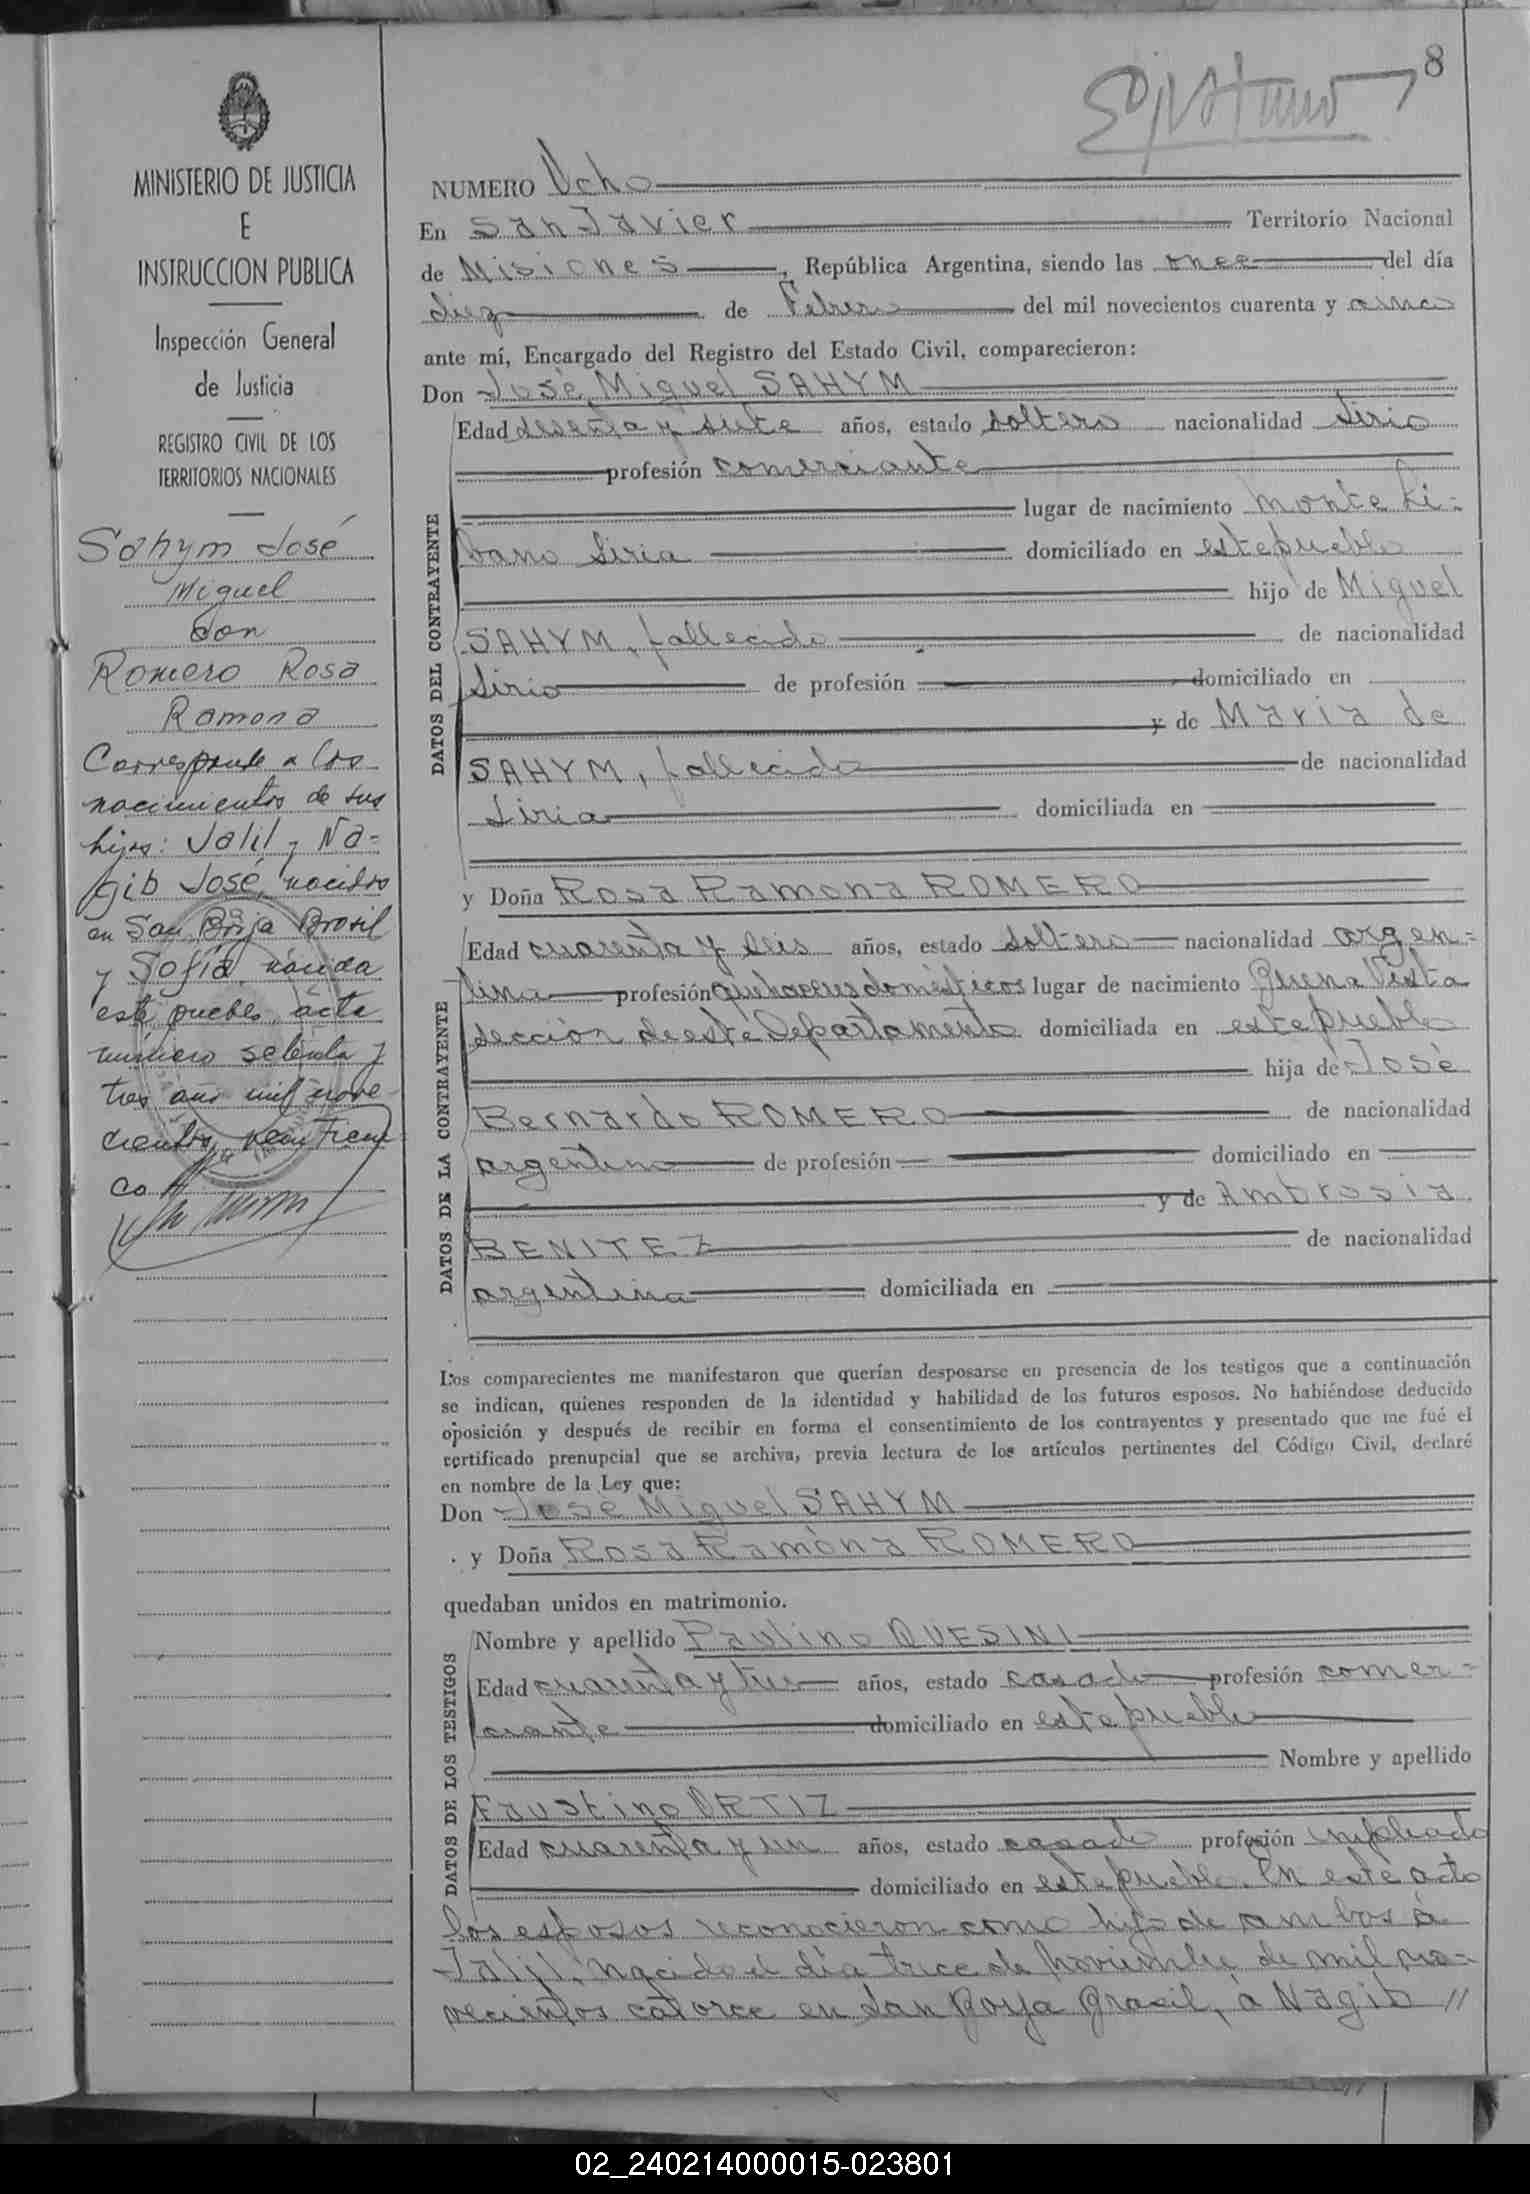 8
MINISTERIO DE JUSTICIA
E
INSTRUCCION PUBLICA
Inspección General
de Justicia
REGISTRO CIVIL DE LOS
TERRITORIOS NACIONALES
Sahym José
Miguel
con
Romero Rosa
Ramona
Corresponde a los
nacimientos de sus
hijos: Jalil y Na=
gib José, nacidos
en San Borja Brasil
y Sofía, nacida
este pueblo, acta
número setenta y
tres año mil nove-
cientos
co
NUMERO Ocho
En San Javier Territorio Nacional
de Misiones, República Argentina, siendo las once del día
diez de Febrero del mil novecientos cuarenta y cinco
ante mí, Encargado del Registro del Estado Civil, comparecieron:
Don José Miguel SAHYM
DATOS DEL CONTRAYENTE
Edad sesenta y siete años, estado soltero nacionalidad Sirio
profesión comerciante
lugar de nacimiento Monte Li-
bano Siria domiciliado en este pueblo
hijo de Miguel
SAHYM, fallecido de nacionalidad
Sirio de profesión domiciliado en
y de Maria de
SAHYM, fallecida de nacionalidad
Siria domiciliada en
y Doña Rosa Ramona ROMERO
DATOS DE LA CONTRAYENTE
Edad cuarenta y seis años, estado soltera nacionalidad argen-
tina profesión quehaceres domésticos lugar de nacimiento Buena Vista
sección de este Departamento domiciliada en este pueblo
hija de José
Bernardo ROMERO de nacionalidad
argentino de profesión domiciliado en
y de Ambrosia
BENITEZ de nacionalidad
argentina domiciliada en
Los comparecientes me manifestaron que querían desposarse en presencia de los testigos que a continuación
se indican, quienes responden de la identidad y habilidad de los futuros esposos. No habiéndose deducido
oposición y después de recibir en forma el consentimiento de los contrayentes y presentado que me fué el
certificado prenupcial que se archiva, previa lectura de los artículos pertinentes del Código Civil, declaré
en nombre de la Ley que:
Don José Miguel SAHYM
y Doña Rosa Ramona ROMERO
quedaban unidos en matrimonio.
DATOS DE LOS TESTIGOS
Nombre y apellido Paulino QUESINI
Edad cuarenta y tres años, estado casado profesión comer-
ciante domiciliado en este pueblo
Nombre y apellido
Faustino ORTIZ
Edad cuarenta y un años, estado casado profesión empleado
domiciliado en este pueblo. En este acto
los esposos reconocieron como hijos de ambos á
Jalil, nacido el día trece de noviembre de mil no-
vecientos catorce en San Borja Brasil, á Nagib //
02_240214000015-023801